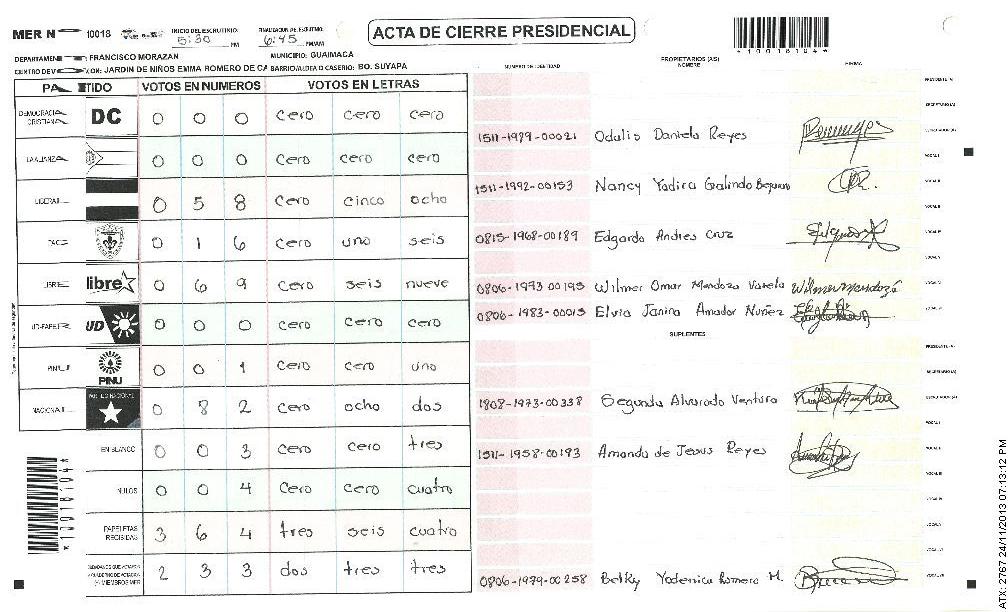 MER N 10018 INICIO DEL ESCRUTINIO: 5:30 PM FINALIZACION DE ESCRUTINIO: 6:45 PM/AM
ACTA DE CIERRE PRESIDENCIAL
*10018104*
DEPARTAMEN FRANCISCO MORAZAN MUNICIPIO: GUAIMACA
CENTRO DE V ON: JARDIN DE NIÑOS EMMA ROMERO DE CA BARRIO/ALDEA O CASERIO: BO. SUYAPA
NUMERO DE IDENTIDAD PROPIETARIOS (AS) NOMBRE FIRMA
PA TIDO VOTOS EN NUMEROS VOTOS EN LETRAS
DEMOCRACIA CRISTIANA DC 0 0 0 cero cero cero
LA ALIANZA 0 0 0 cero cero cero
LIBERAL 0 5 8 cero cinco ocho
PAC 0 1 6 cero uno seis
LIBRE libre 0 6 9 cero seis nueve
UD-FAPER UD 0 0 0 cero cero cero
PINU PINU 0 0 1 cero cero uno
NACIONAL PARTIDO NACIONAL 0 8 2 cero ocho dos
EN BLANCO 0 0 3 cero cero tres
NULOS 0 0 4 cero cero cuatro
PAPELETAS RECIBIDAS 3 6 4 tres seis cuatro
CIUDADANOS QUE VOTARON 2 3 3 dos tres tres
1511-1989-00021 Odalis Daniela Reyes
1511-1992-00153 Nancy Yadira Galindo
0815-1968-00189 Edgardo Andres Cruz
0806-1973 00195 Wilmer Omar Mendoza Varela Wilmer Mendoza
0806-1983-00015 Elvia Janina Amador Nuñez
SUPLENTES
1808-1973-00338 Segundo Alvarado Ventura
1511-1958-00193 Amanda de Jesus Reyes
0806-1979-00258 Belky Yodenica Romero M.
ATX: 2767 24/11/2013 07:13:12 PM